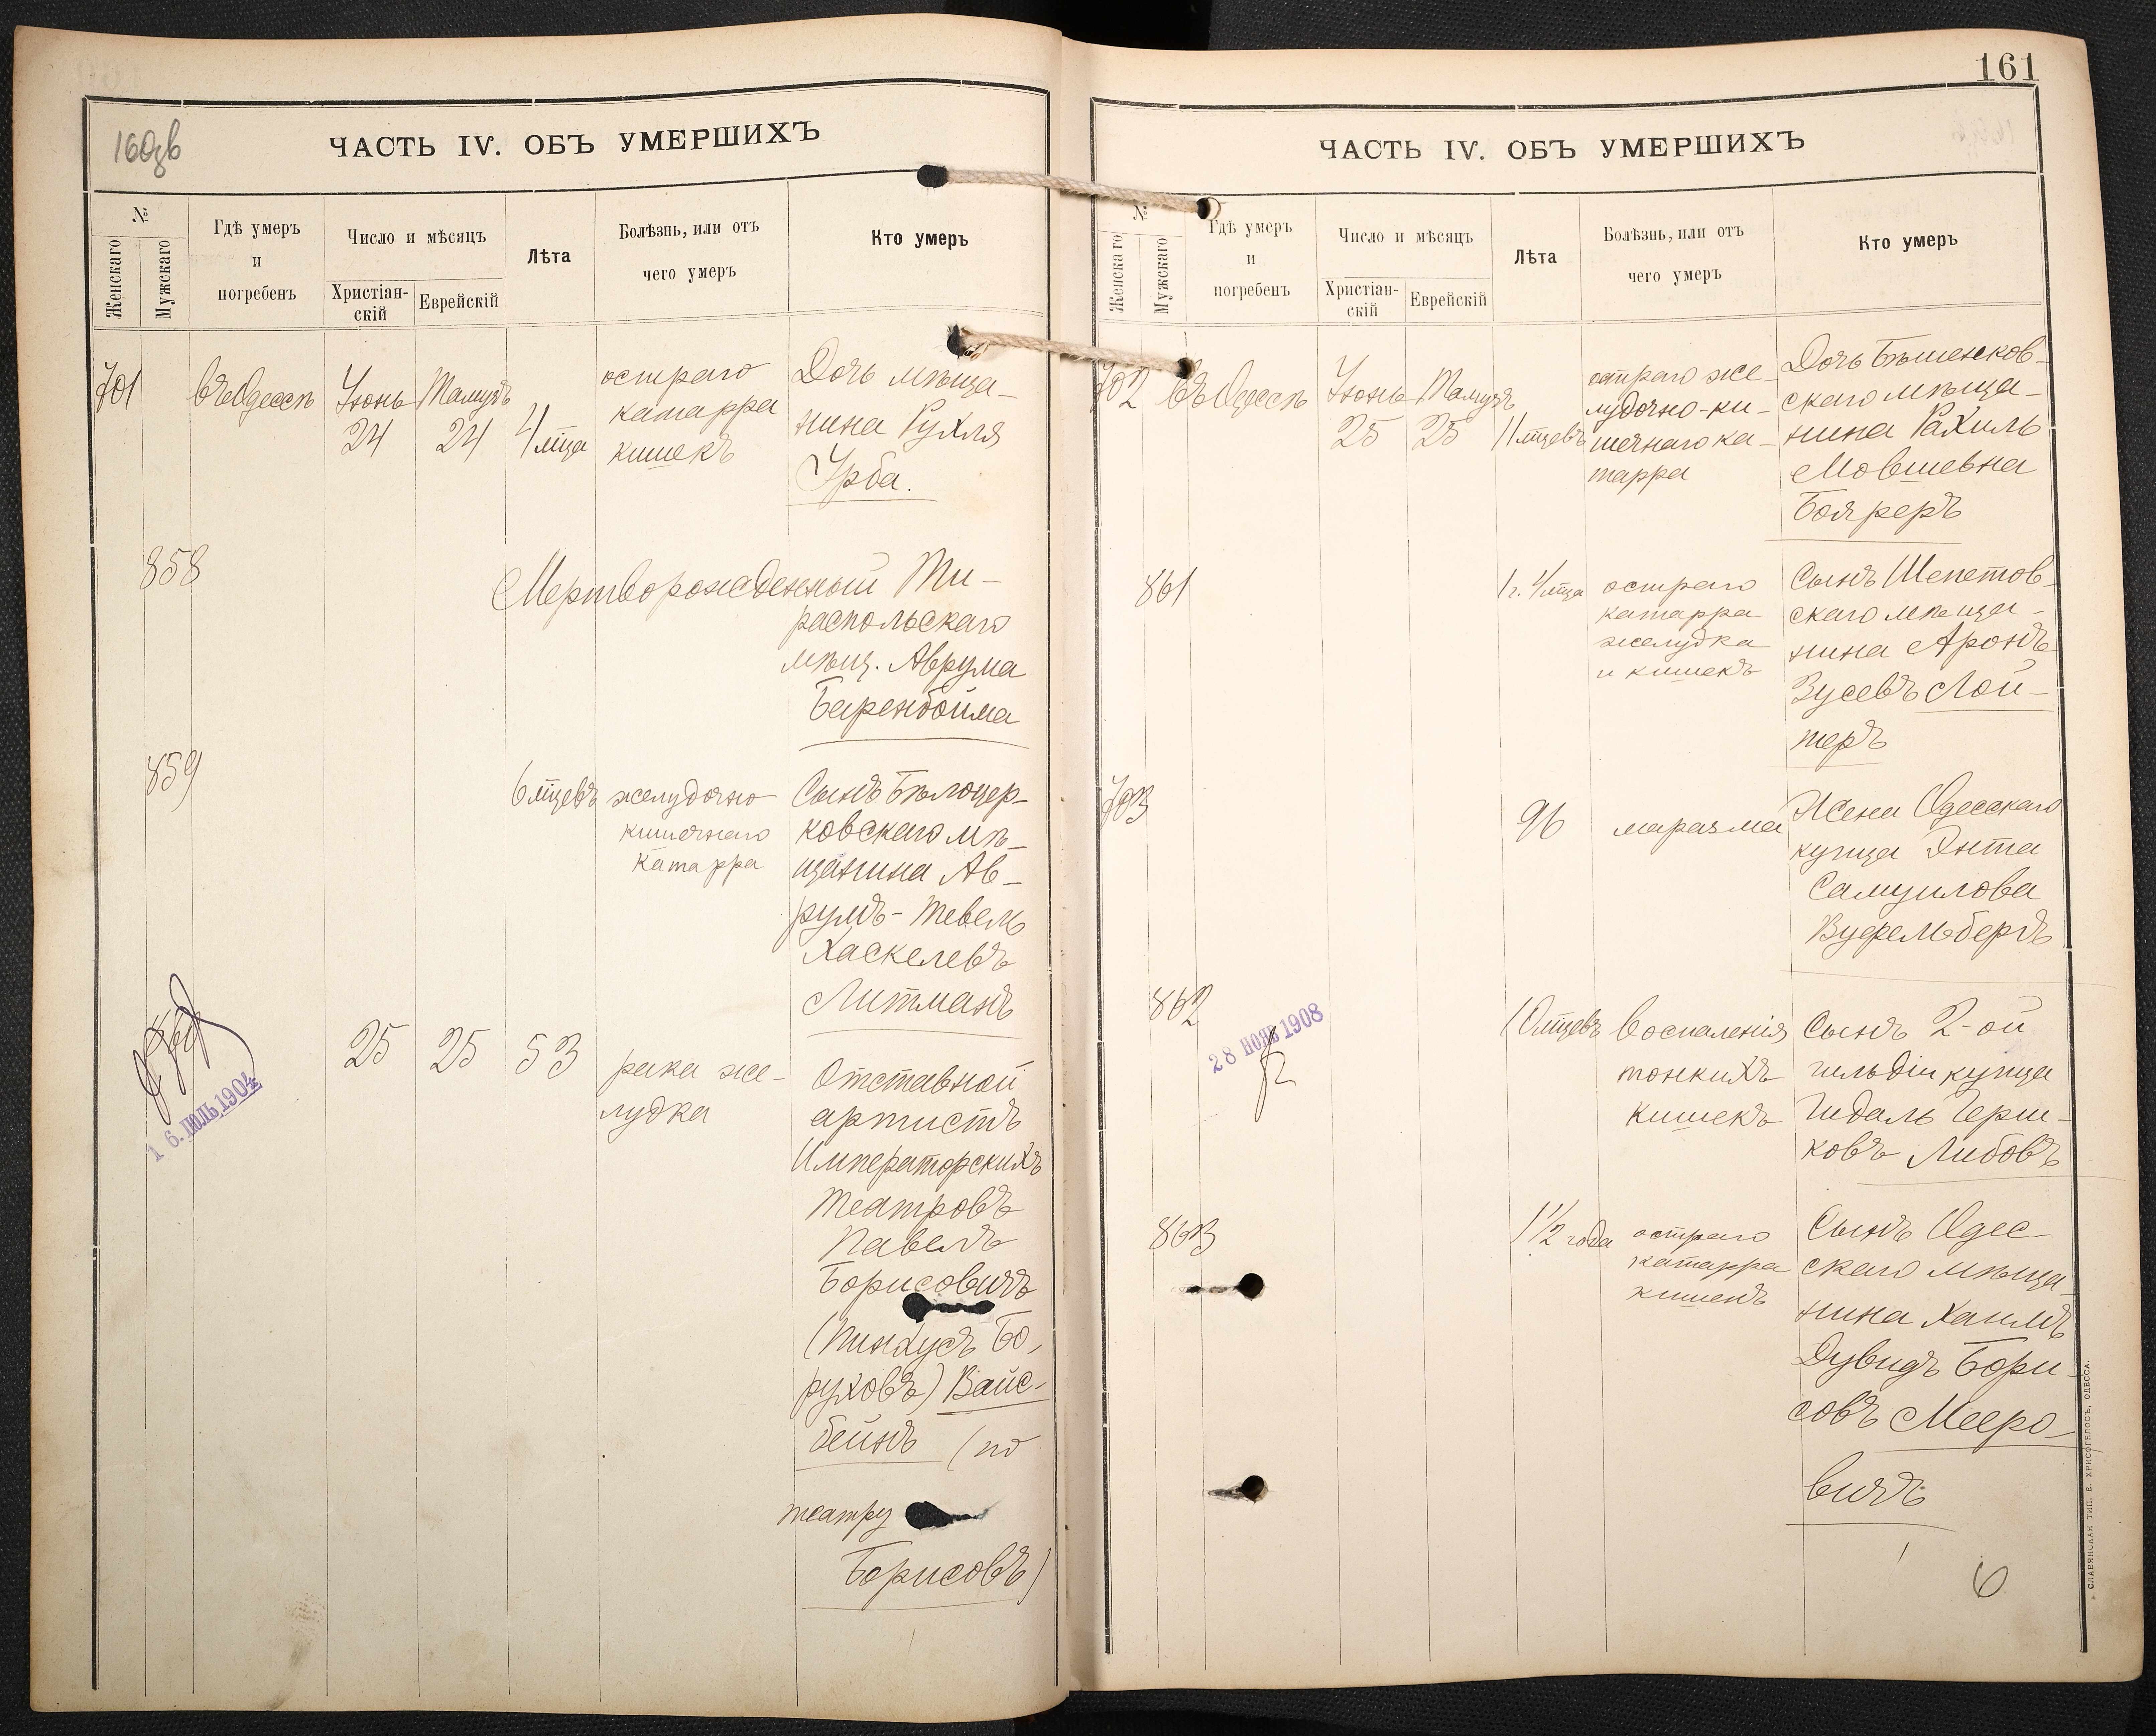 160зв
ЧАСТЬ IV. ОБЪ УМЕРШИХЪ
№
Женскаго
Мужскаго
Гдѣ умеръ
и
погребенъ
Число и мѣсяцъ
Христіан-
скій
Еврейскій
Лѣта
Болѣзнь, или отъ
чего умеръ
Кто умеръ
701
въ Одессѣ
Іюнь
24
Тамузъ
24
4 м͠ца
остраго
катарра
кишекъ
Дочь мѣща-
нина Рухля
Урба.
858
Мертворожденный Ти-
распольскаго
мѣщ. Аврума
Баренбойма
859
6 м͠цевъ
желудочно
кишечнаго
катарра
Сынъ Бѣлоцер-
ковскаго мѣ-
щанина Ав-
румъ-Тевель
Хаскелевъ
Литманъ
860
16. ІЮЛЬ 1904
25
25
53
рака же-
лудка
Отставной
артистъ
Императорскихъ
театровъ
Павелъ
Борисовичъ
(Пинхусъ Бо-
руховъ) Вайс-
бейнъ (по
театру
Борисовъ)
161
ЧАСТЬ IV. ОБЪ УМЕРШИХЪ
№
Женскаго
Мужскаго
Гдѣ умеръ
и
погребенъ
Число и мѣсяцъ
Христіан-
скій
Еврейскій
Лѣта
Болѣзнь, или отъ
чего умеръ
Кто умеръ
702
въ Одессѣ
Іюнь
25
Тамузъ
25
11 м͠цевъ
остраго же-
лудочно-ки-
шечнаго ка-
тарра
Дочь Бѣшенков-
скаго мѣща-
нина Рахиль
Мовшевна
Бояреръ
861
1 г. 4 м͠ца
остраго
катарра
желудка
и кишекъ
Сынъ Шепетов-
скаго мѣща-
нина Аронъ
Зусевъ Лой-
теръ
703
96
маразма
Жена Одесскаго
купца Энта
Самуилова
Вуфельбергъ
862
28 НОЯБ 1908
10 м͠цевъ
воспаленія
тонкихъ
кишекъ
Сынъ 2-ой
гильдіи купца
Гидаль Герш-
ковъ Либовъ
863
1 1/2 года
остраго
катарра
кишекъ
Сынъ Одес-
скаго мѣща-
нина Хаимъ
Дувидъ Бори-
совъ Мееро-
вичъ
6
СЛАВЯНСКАЯ ТИП. Е. ХРИСОГЕЛОСЪ, ОДЕССА.